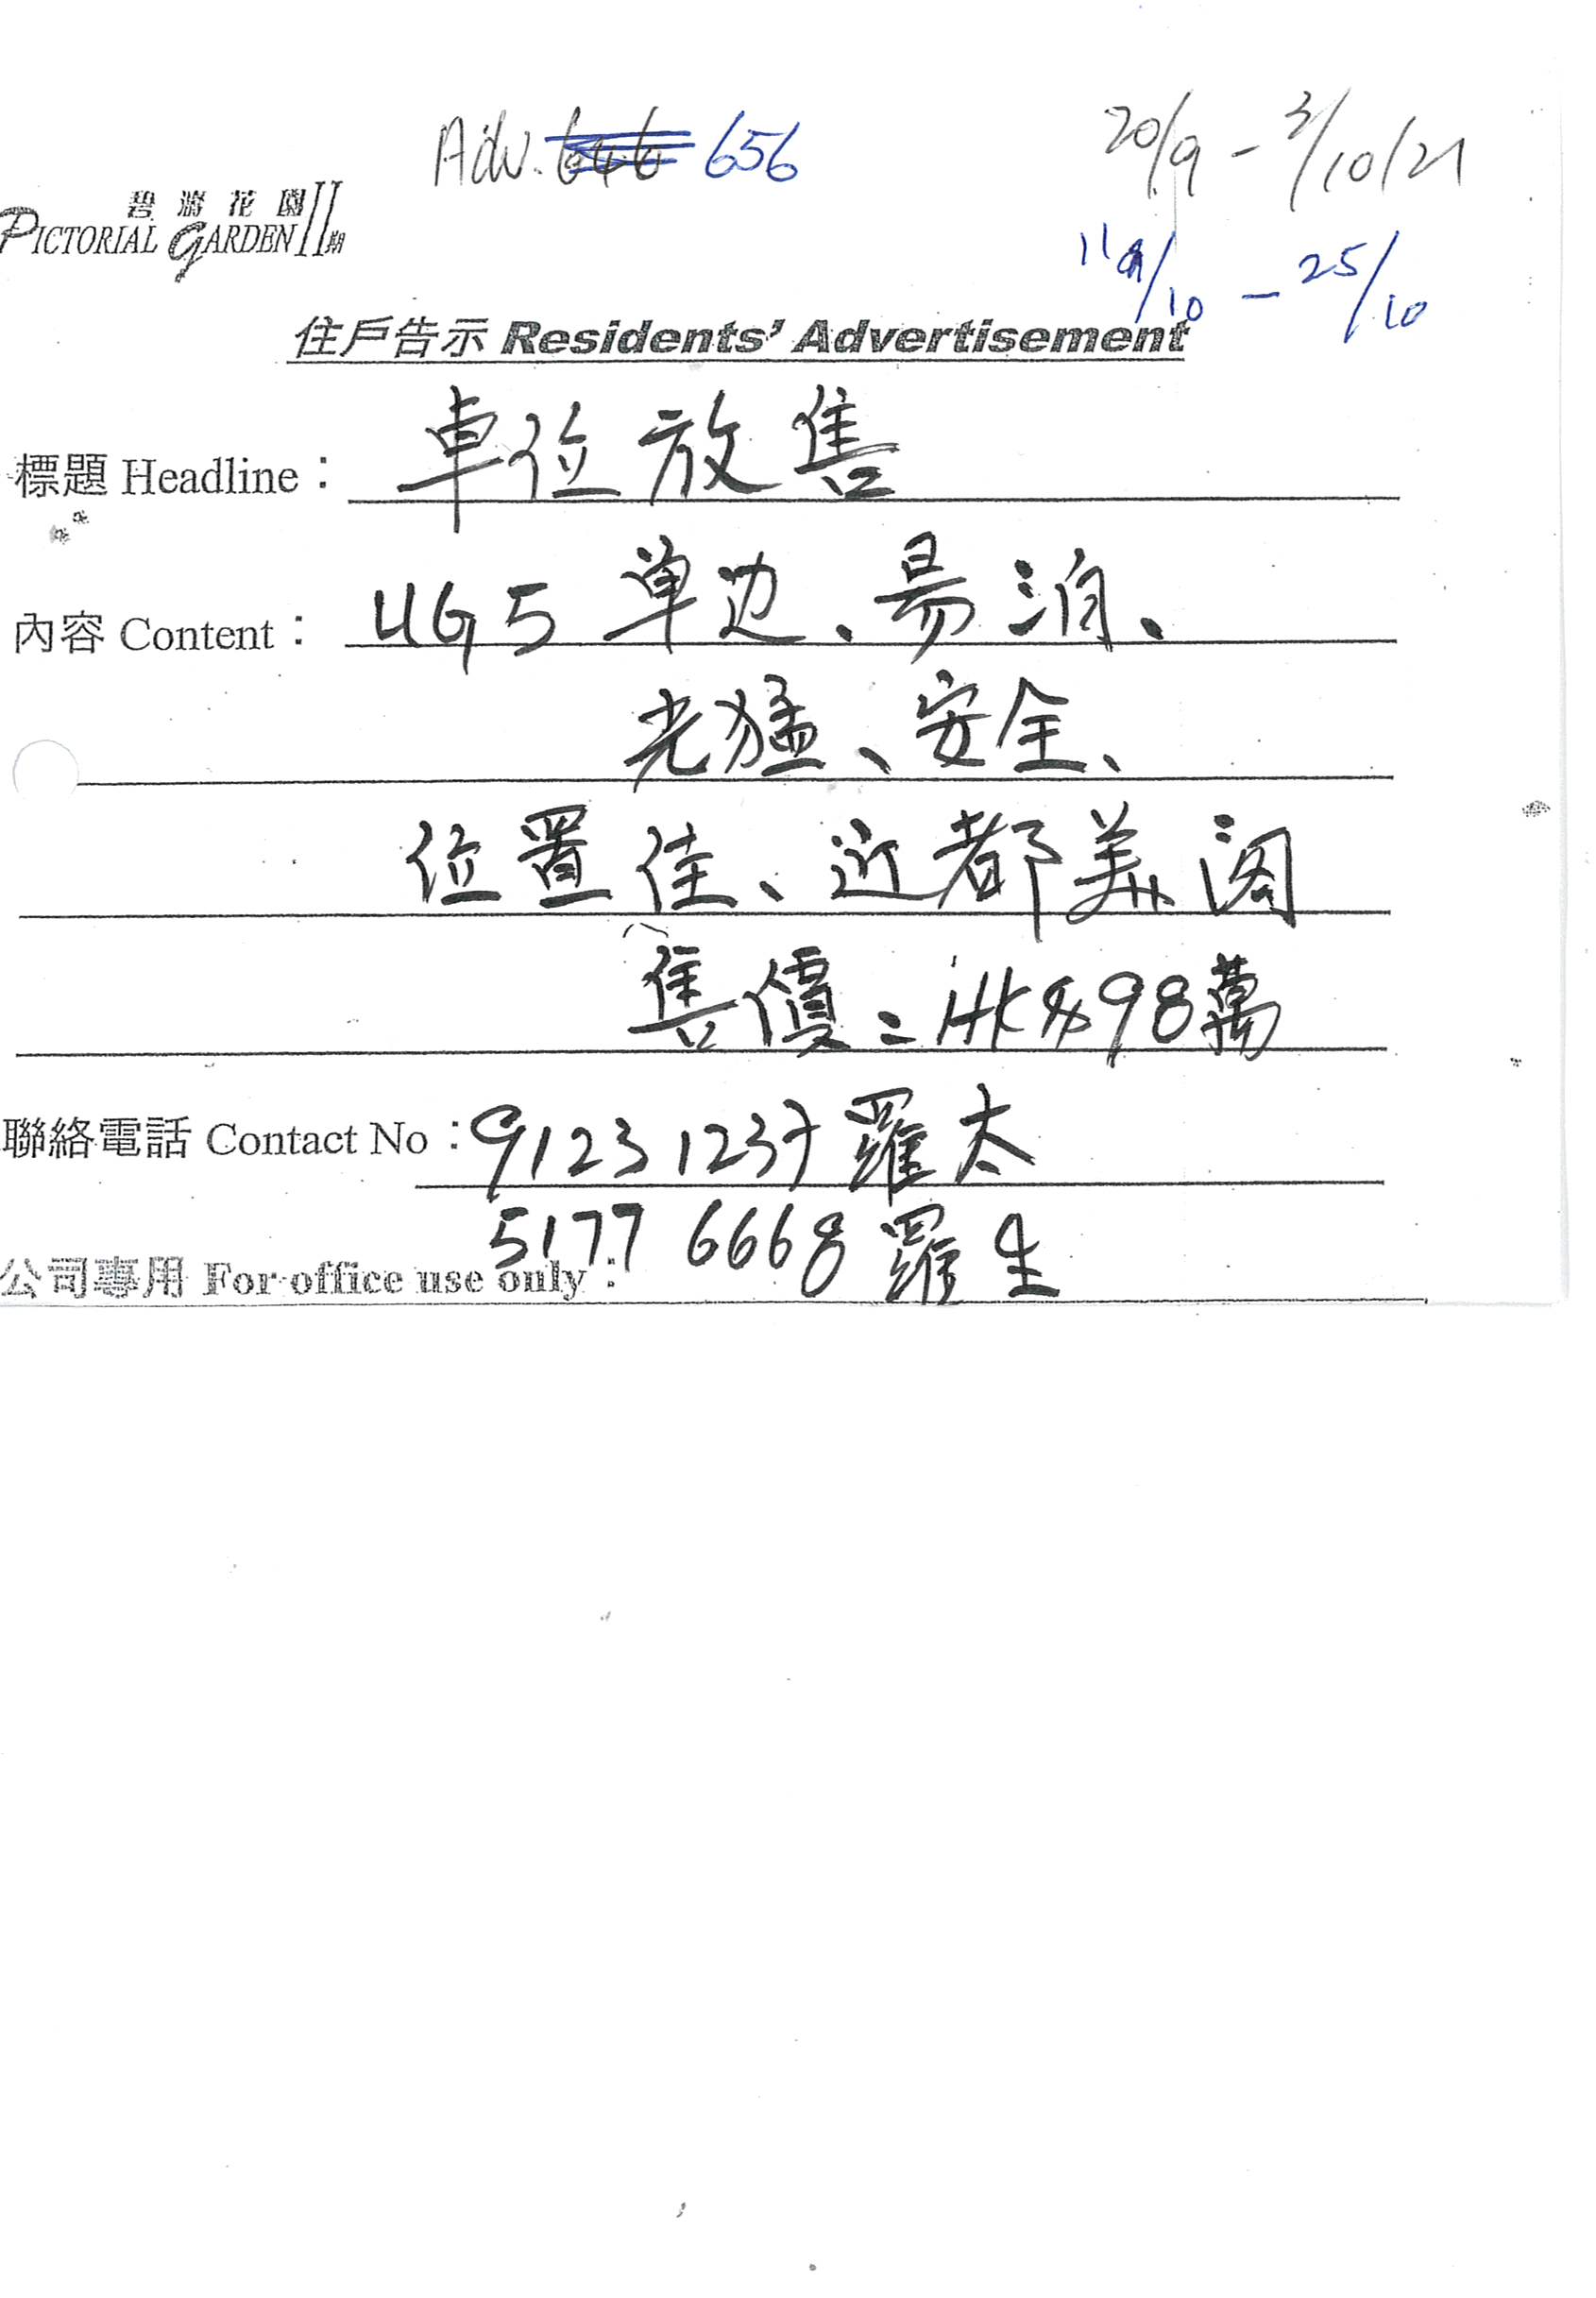 Adv. 656
20/9 - 3/10/21
碧濤花園II期
PICTORIAL GARDEN
11/10 - 25/10
住戶告示 Residents' Advertisement
標題 Headline： 車位放售
內容 Content： UG5 单边、易泊、
光猛、安全、
位置佳、近都美阁
售價：HK$98萬
聯絡電話 Contact No：9123 1237 羅太
5177 6668 羅生
公司專用 For office use only：